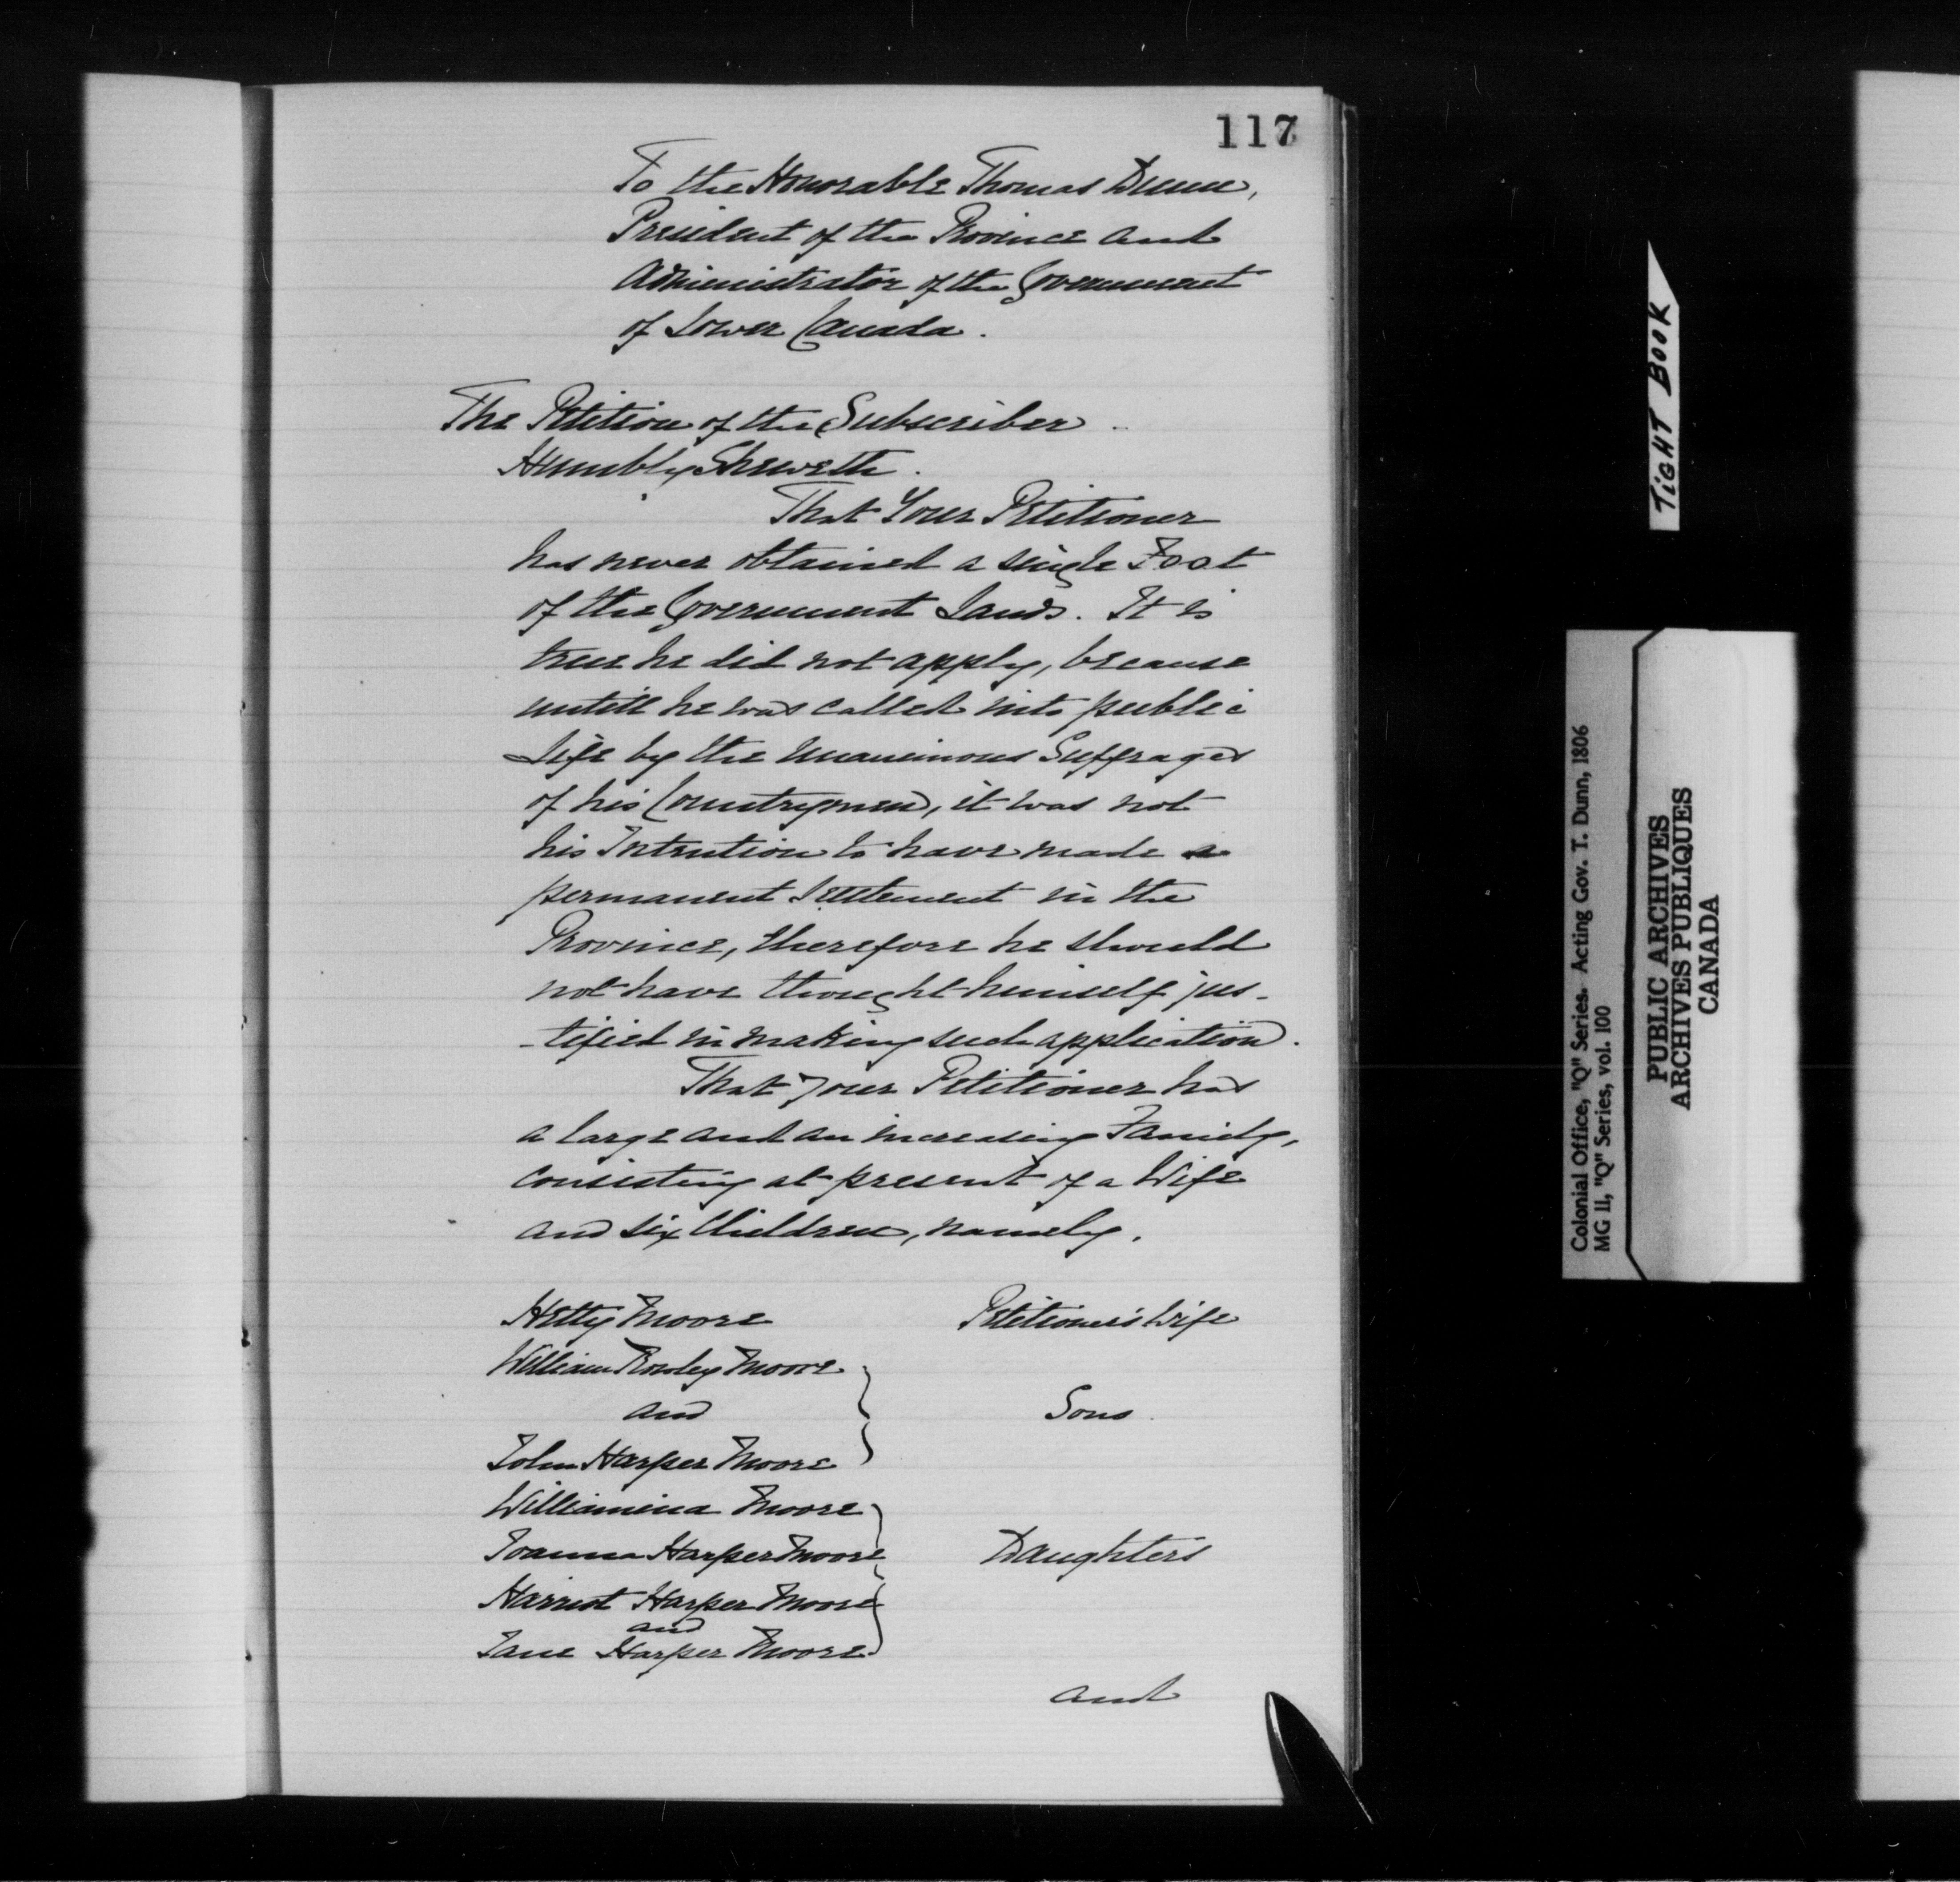 117
To the Honorable Thomas Dunn,
President of the Province and
Administrator of the Government
of Lower Canada.
The Petition of the Subscriber
Humbly Sheweth.
That Your Petitioner
has never obtained a single Foot
of the Government Lands. It is
true he did not apply, because
untill he was called into public
Life by the Unanimous Suffrages
of his Countrymen, it was not
his Intention to have made a
permanent Settlement in the
Province, therefore he should
not have thought himself jus-
-tified in making such application.
That your Petitioner has
a large and an increasing Family,
consisting at present of a Wife
and six Children, namely.
Hetty Moore Petitioner's Wife
William Rowley Moore
and Sons.
John Harper Moore
Williamina Moore
Joanna Harper Moore Daughters
Harriot Harper Moore
and
Jane Harper Moore
and
TIGHT BOOK
Colonial Office, "Q" Series. Acting Gov. T. Dunn, 1806
MG 11, "Q" Series, vol. 100
PUBLIC ARCHIVES
ARCHIVES PUBLIQUES
CANADA